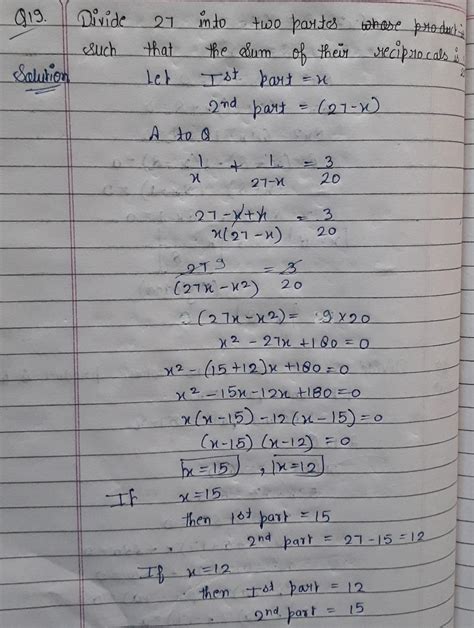 Q19. Divide 27 into two partes whose product
such that the sum of their reciprocals is
Solution Let Ist part = x
2nd part = (27-x)
A to Q
1/x + 1/27-x = 3/20
27-x+x/x(27-x) = 3/20
27 9/(27x-x²) = 3/20
(27x-x²) = 9×20
x²-27x+180=0
x²-(15+12)x+180=0
x²-15x-12x+180=0
x(x-15)-12(x-15)=0
(x-15) (x-12)=0
x=15, x=12
If x=15
then 1st part = 15
2nd part = 27-15=12
If x=12
then Ist part = 12
2nd part = 15